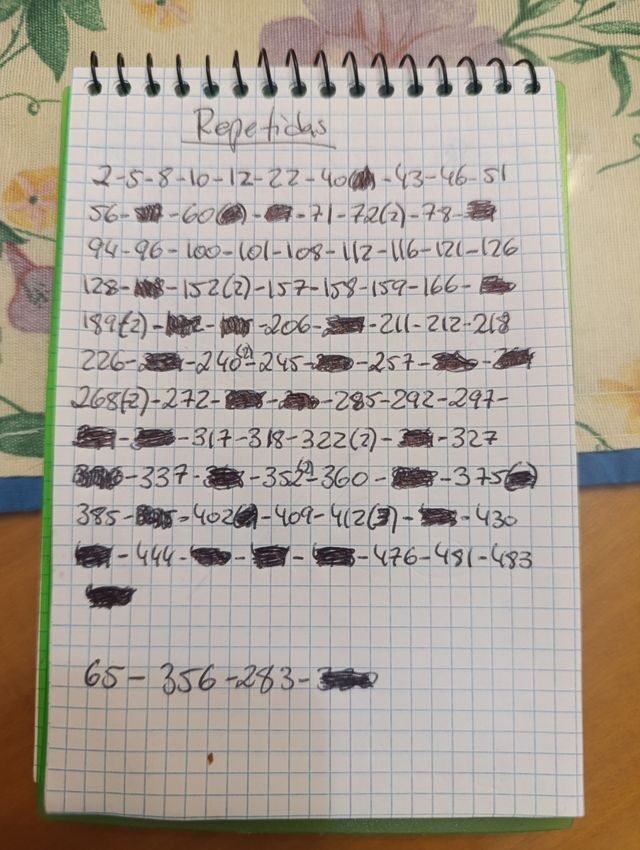 Repetidas
2-5-8-10-12-22-40-43-46-51
56-60-71-72(2)-78-
94-96-100-101-108-112-116-121-126
128-152(2)-157-158-159-166-
189(2)-206-211-212-218
226-240(2)-245-257-
268(2)-272-285-292-297-
317-318-322(2)-327
-337-352(2)-360-375
385-402-409-412(3)-430
-444-476-481-483
65-356-283-